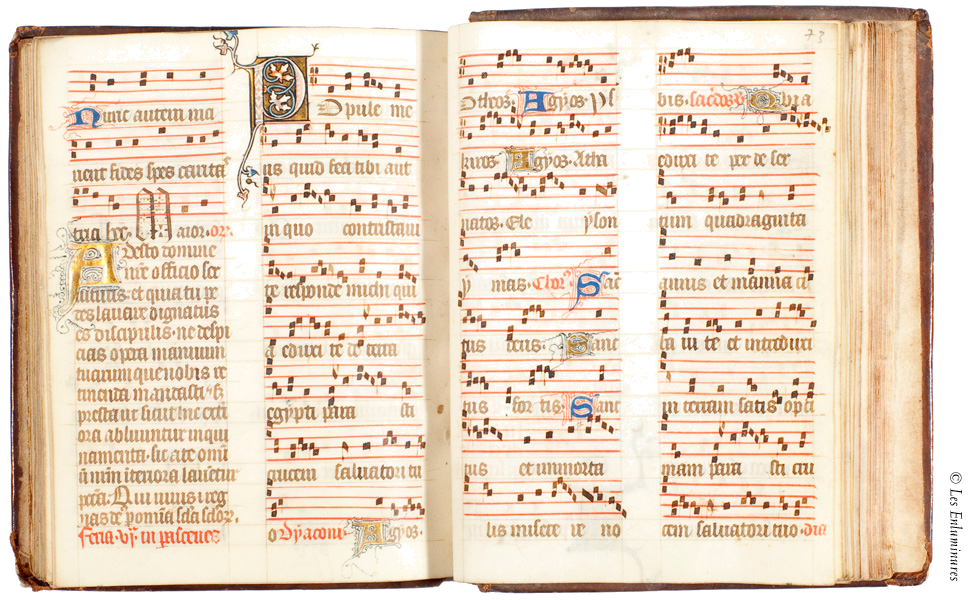 Nunc autem ma
nent fides spes caritas
tria hec. Maior. or.
Adesto domine
nire officio ser
uitutis et quia tu pe
des lauare dignatus
es discipulis. ne despi
cias opera manuum
tuarum que nobis re
tinenda mandasti. &
presta ut sicut hic exti
ora abluuntur inqui
namenta. sic a te omni
um nrm interiora lauentur
pctā. Qui uiuis i reg
nas
feria. vj. in parasceues
Popule me
us quid feci tibi aut
in quo contristaui
te responde michi qui
a eduxi te de terra
egypti para sti
crucem saluatori tu
o Dyaconi. Agyos.
73
Otheos. Agyos. ysl
kiros. Agyos. Atha
natos. Ele yson
y mas. Chor9. Sāc
tus deus. Sanc
tus for tis. Sanc
tus et inmorta
lis misere re no
bis. sacdos. v. Q v ia
eduxi te per de ser
tum quadraginta
annis et manna ci
ba ui te et introduxi
in terram satis opti
mam para sti cru
cem saluatori tuo. dia
© Les Enluminures